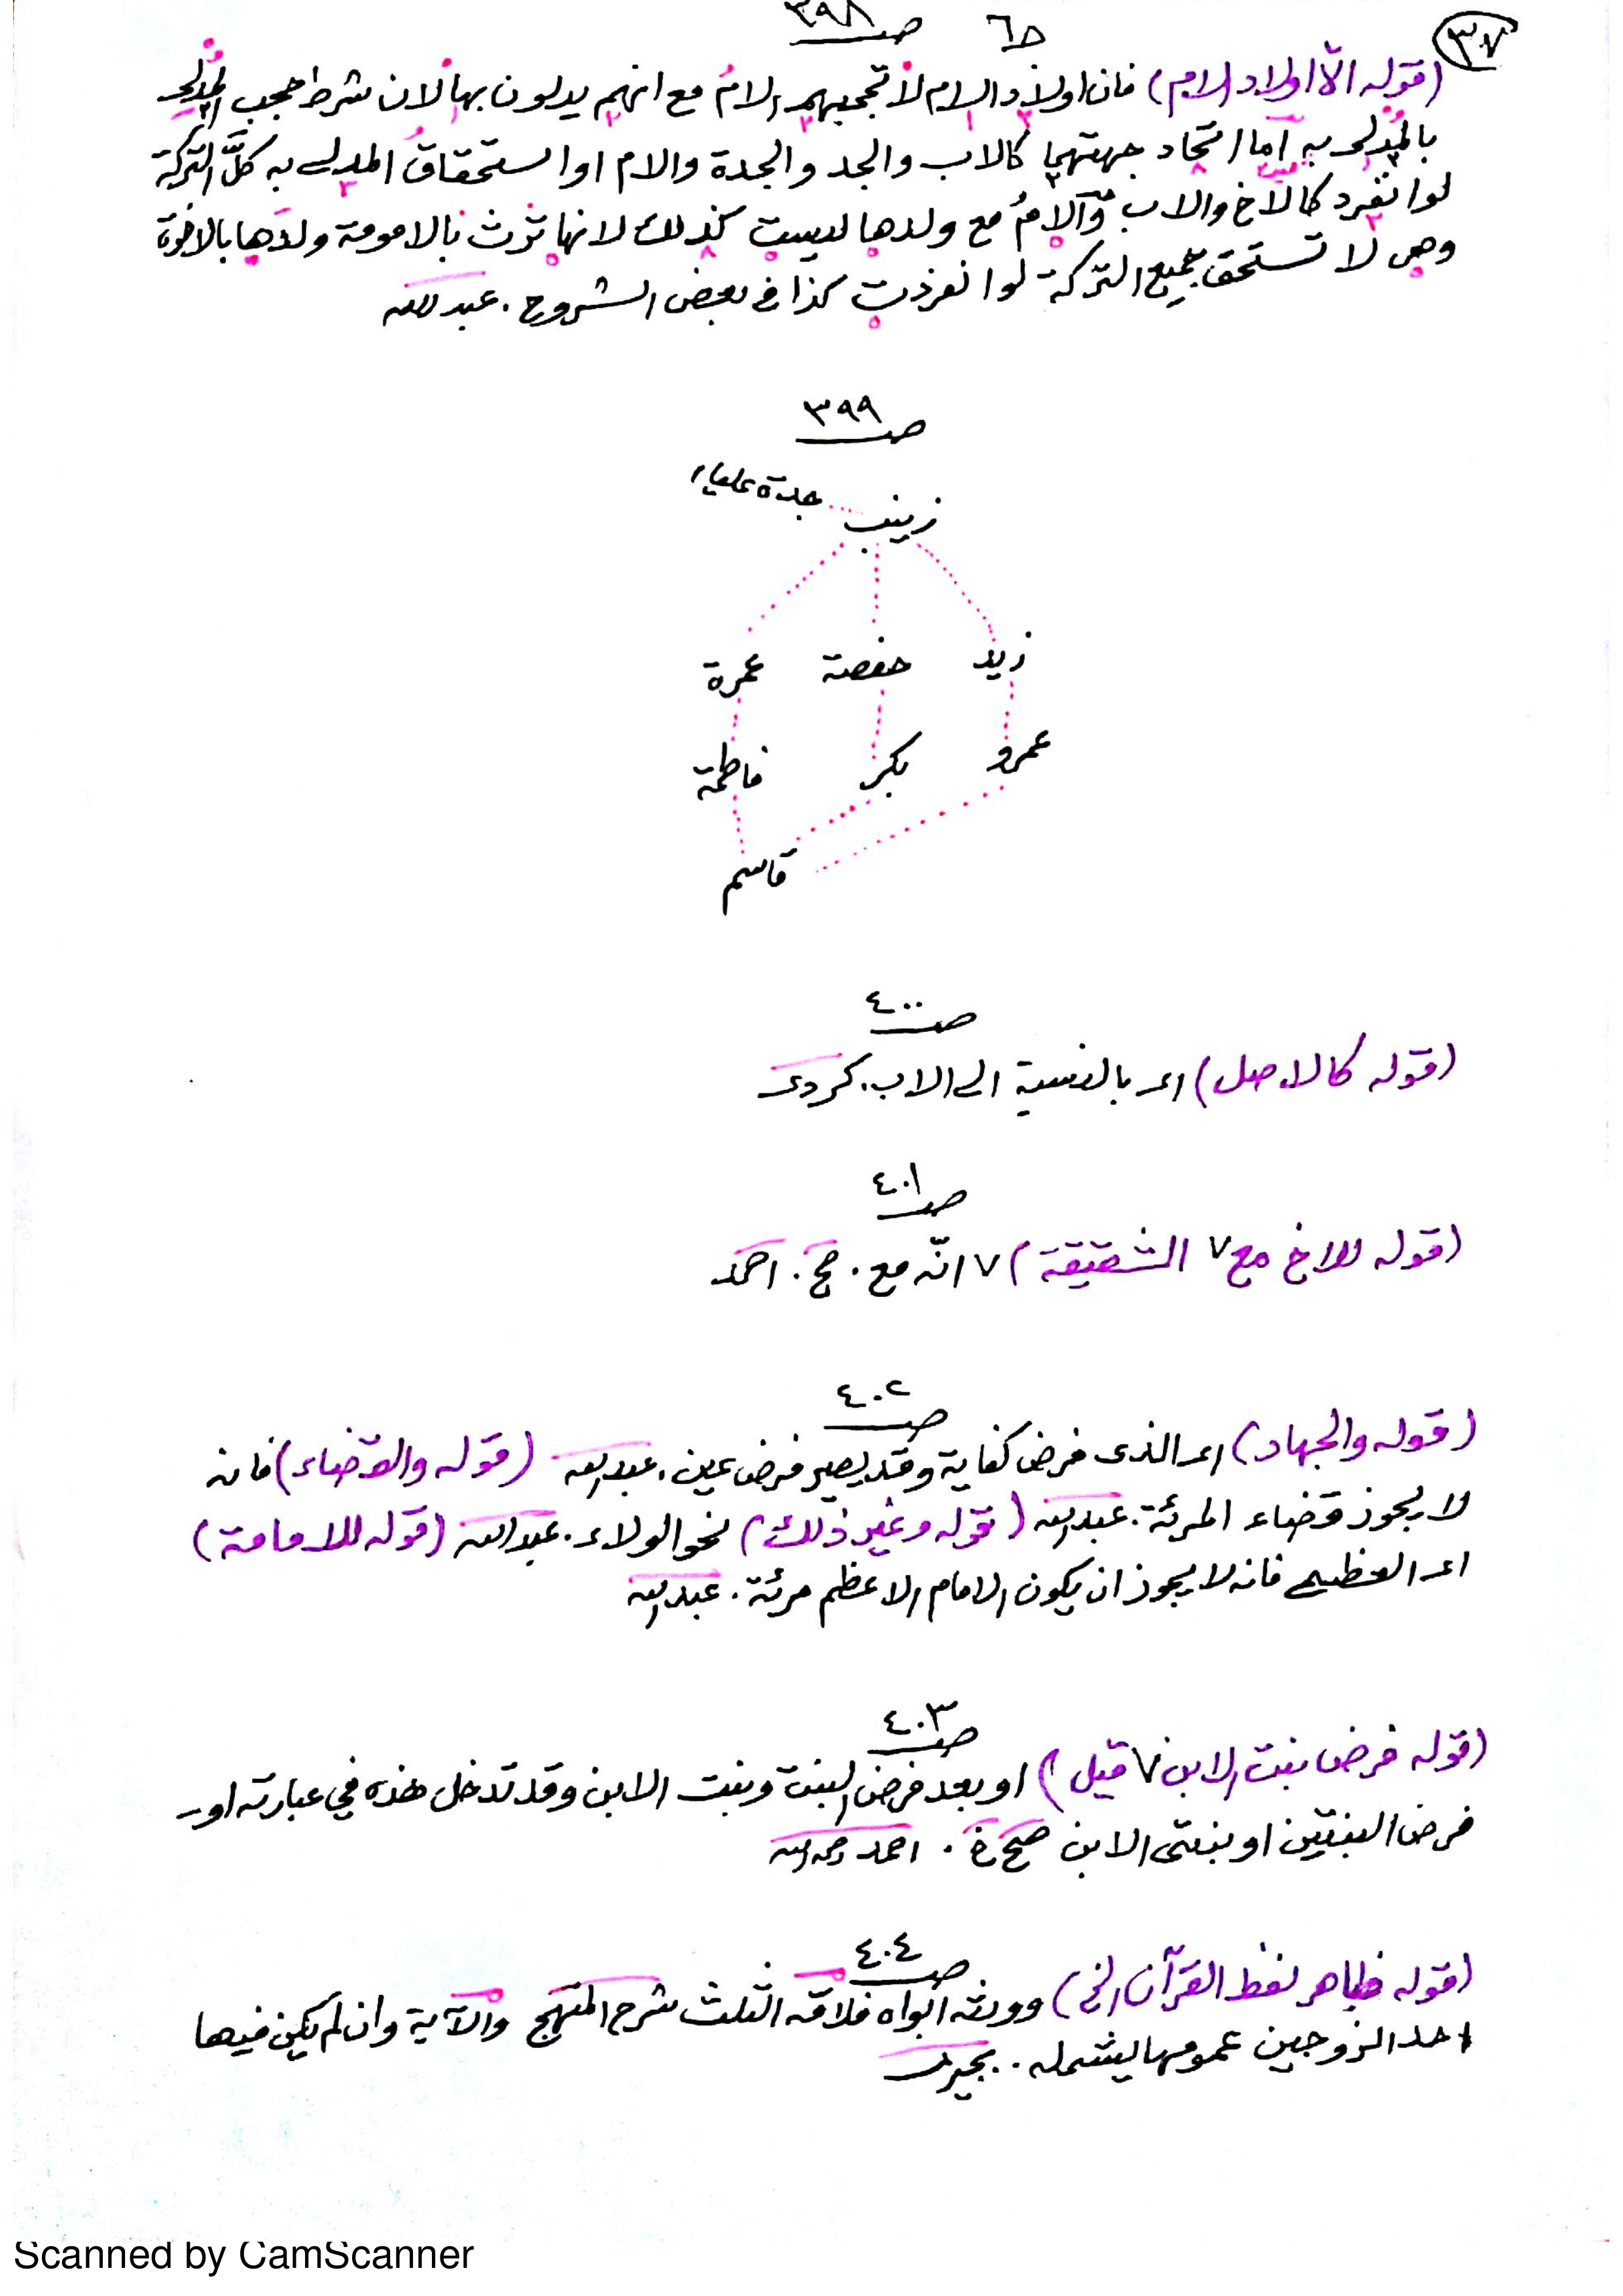 ٣٧
ج٦ صـ ٣٩٨
(قوله الا اولاد الام) فان اولاد الام لا تحجبهم الام مع انهم يدلون بها لان شرط حجب المدلي
بالمدلى به اما اتحاد جهتهما كالاب والجد والجدة والام او استحقاق المدلى به كل التركة
لو انفرد كالاخ والاب والام مع ولدها ليست كذلك لانها ترث بالامومة ولدها بالاخوة
وهي لا تستحق جميع التركة لو انفردت كذا في بعض الشروح. عبدالله
صـ ٣٩٩
جدة علياء
زينب
زيد حفصة عمرة
عمرو بكر فاطمة
قاسم
صـ ٤٠٠
(قوله كالاصل) اى بالنسبة الى الاب. كردى
صـ ٤٠١
(قوله للاخ مع٧ الشقيقة) ٧ انّه مع. صح. احمد
صـ ٤٠٢
(قوله والجهاد) اى الذى فرض كفاية وقد يصير فرض عين. عبدالله (قوله والقضاء) فانه
لا يجوز قضاء المرئة. عبدالله (قوله وغير ذلك) نحو الولاء. عبدالله (قوله للامامة)
اى العظيم فانه لا يجوز ان يكون الامام الاعظم مرئة. عبدالله
صـ ٤٠٣
(قوله فرض بنت الابن ٧ قيل) او بعد فرض البنت وبنت الابن وقد تدخل هذه في عبارته او
فرض البنتين او بنتى الابن صح. احمد رحمه الله
صـ ٤٠٤
(قوله ظاهر لفظ القرآن الخ) وورثه ابواه فلامّه الثلث شرح المنهج والآية وان لم يكن فيها
احد الزوجين عمومها يشمله. بجيرمى
Scanned by CamScanner